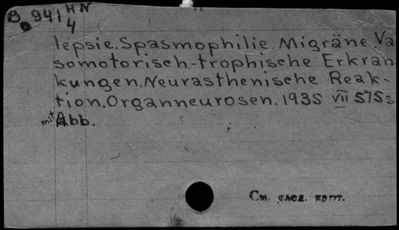 B 941 HN
4
lepsie. Spasmophilie. Migräne. Va
somotorisch-trophische Erkran
kungen. Neurasthenische Reak-
tion. Organneurosen. 1935 VII 575 s
mit Abb.
См. след. карт.